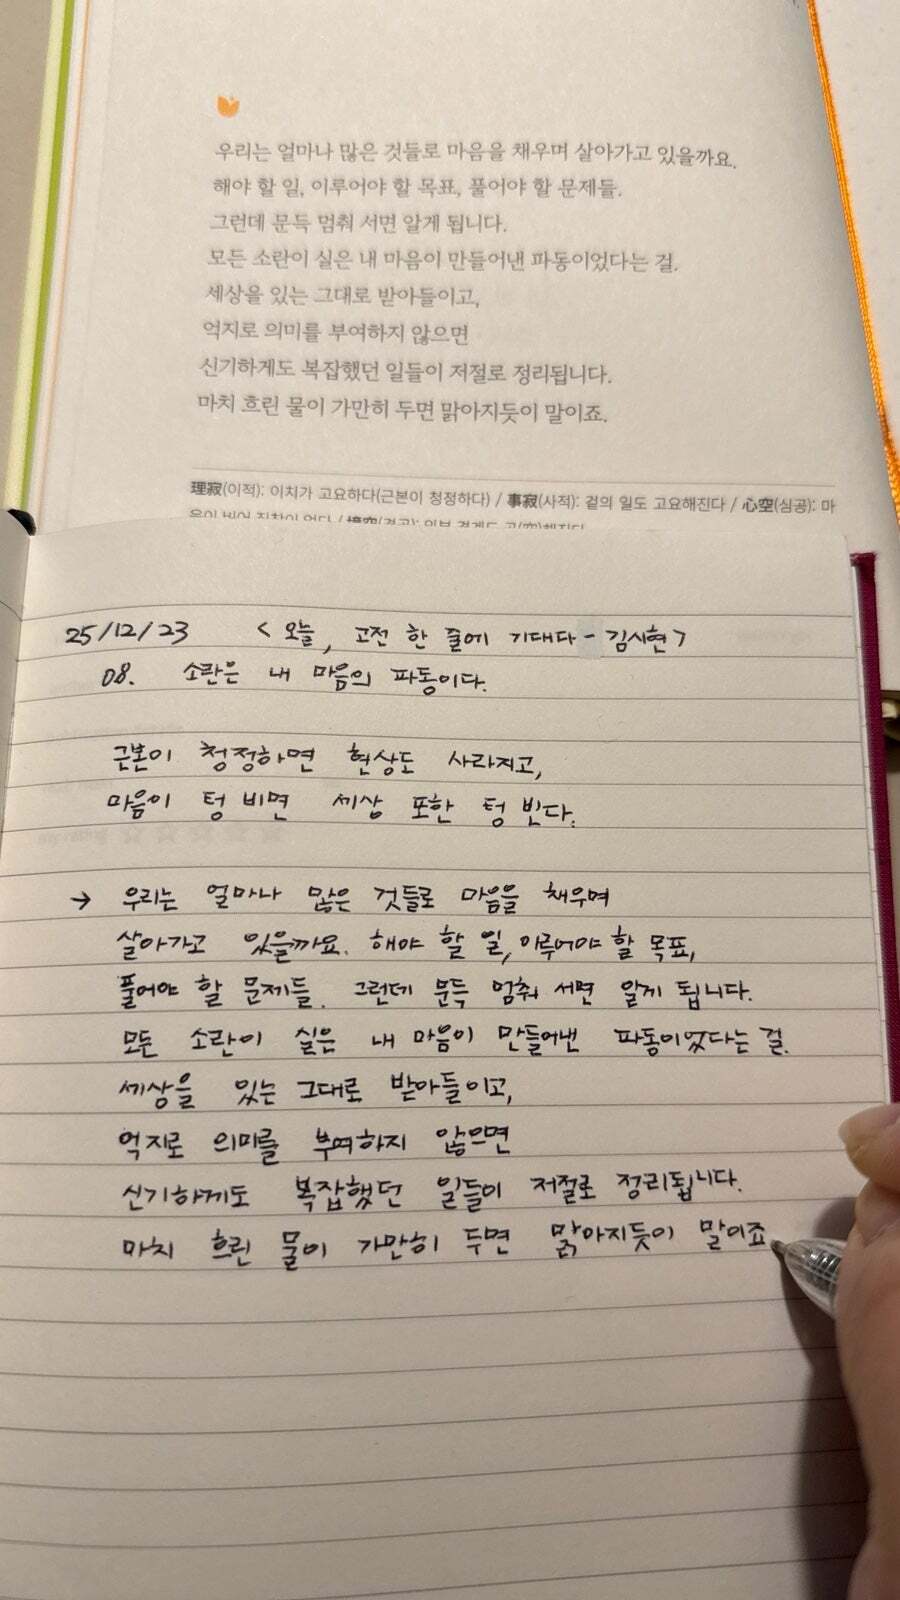 우리는 얼마나 많은 것들로 마음을 채우며 살아가고 있을까요.
해야 할 일, 이루어야 할 목표, 풀어야 할 문제들.
그런데 문득 멈춰 서면 알게 됩니다.
모든 소란이 실은 내 마음이 만들어낸 파동이었다는 걸.
세상을 있는 그대로 받아들이고,
억지로 의미를 부여하지 않으면
신기하게도 복잡했던 일들이 저절로 정리됩니다.
마치 흐린 물이 가만히 두면 맑아지듯이 말이죠.
理寂(이적): 이치가 고요하다(근본이 청정하다) / 事寂(사적): 겉의 일도 고요해진다 / 心空(심공): 마
25/12/23 < 오늘, 고전 한 줄에 기대다 - 김시현 >
08. 소란은 내 마음의 파동이다.
근본이 청정하면 현상도 사라지고,
마음이 텅 비면 세상 또한 텅 빈다.
→ 우리는 얼마나 많은 것들로 마음을 채우며
살아가고 있을까요. 해야 할 일, 이루어야 할 목표,
풀어야 할 문제들. 그런데 문득 멈춰 서면 알게 됩니다.
모든 소란이 실은 내 마음이 만들어낸 파동이었다는 걸.
세상을 있는 그대로 받아들이고,
억지로 의미를 부여하지 않으면
신기하게도 복잡했던 일들이 저절로 정리됩니다.
마치 흐린 물이 가만히 두면 맑아지듯이 말이죠